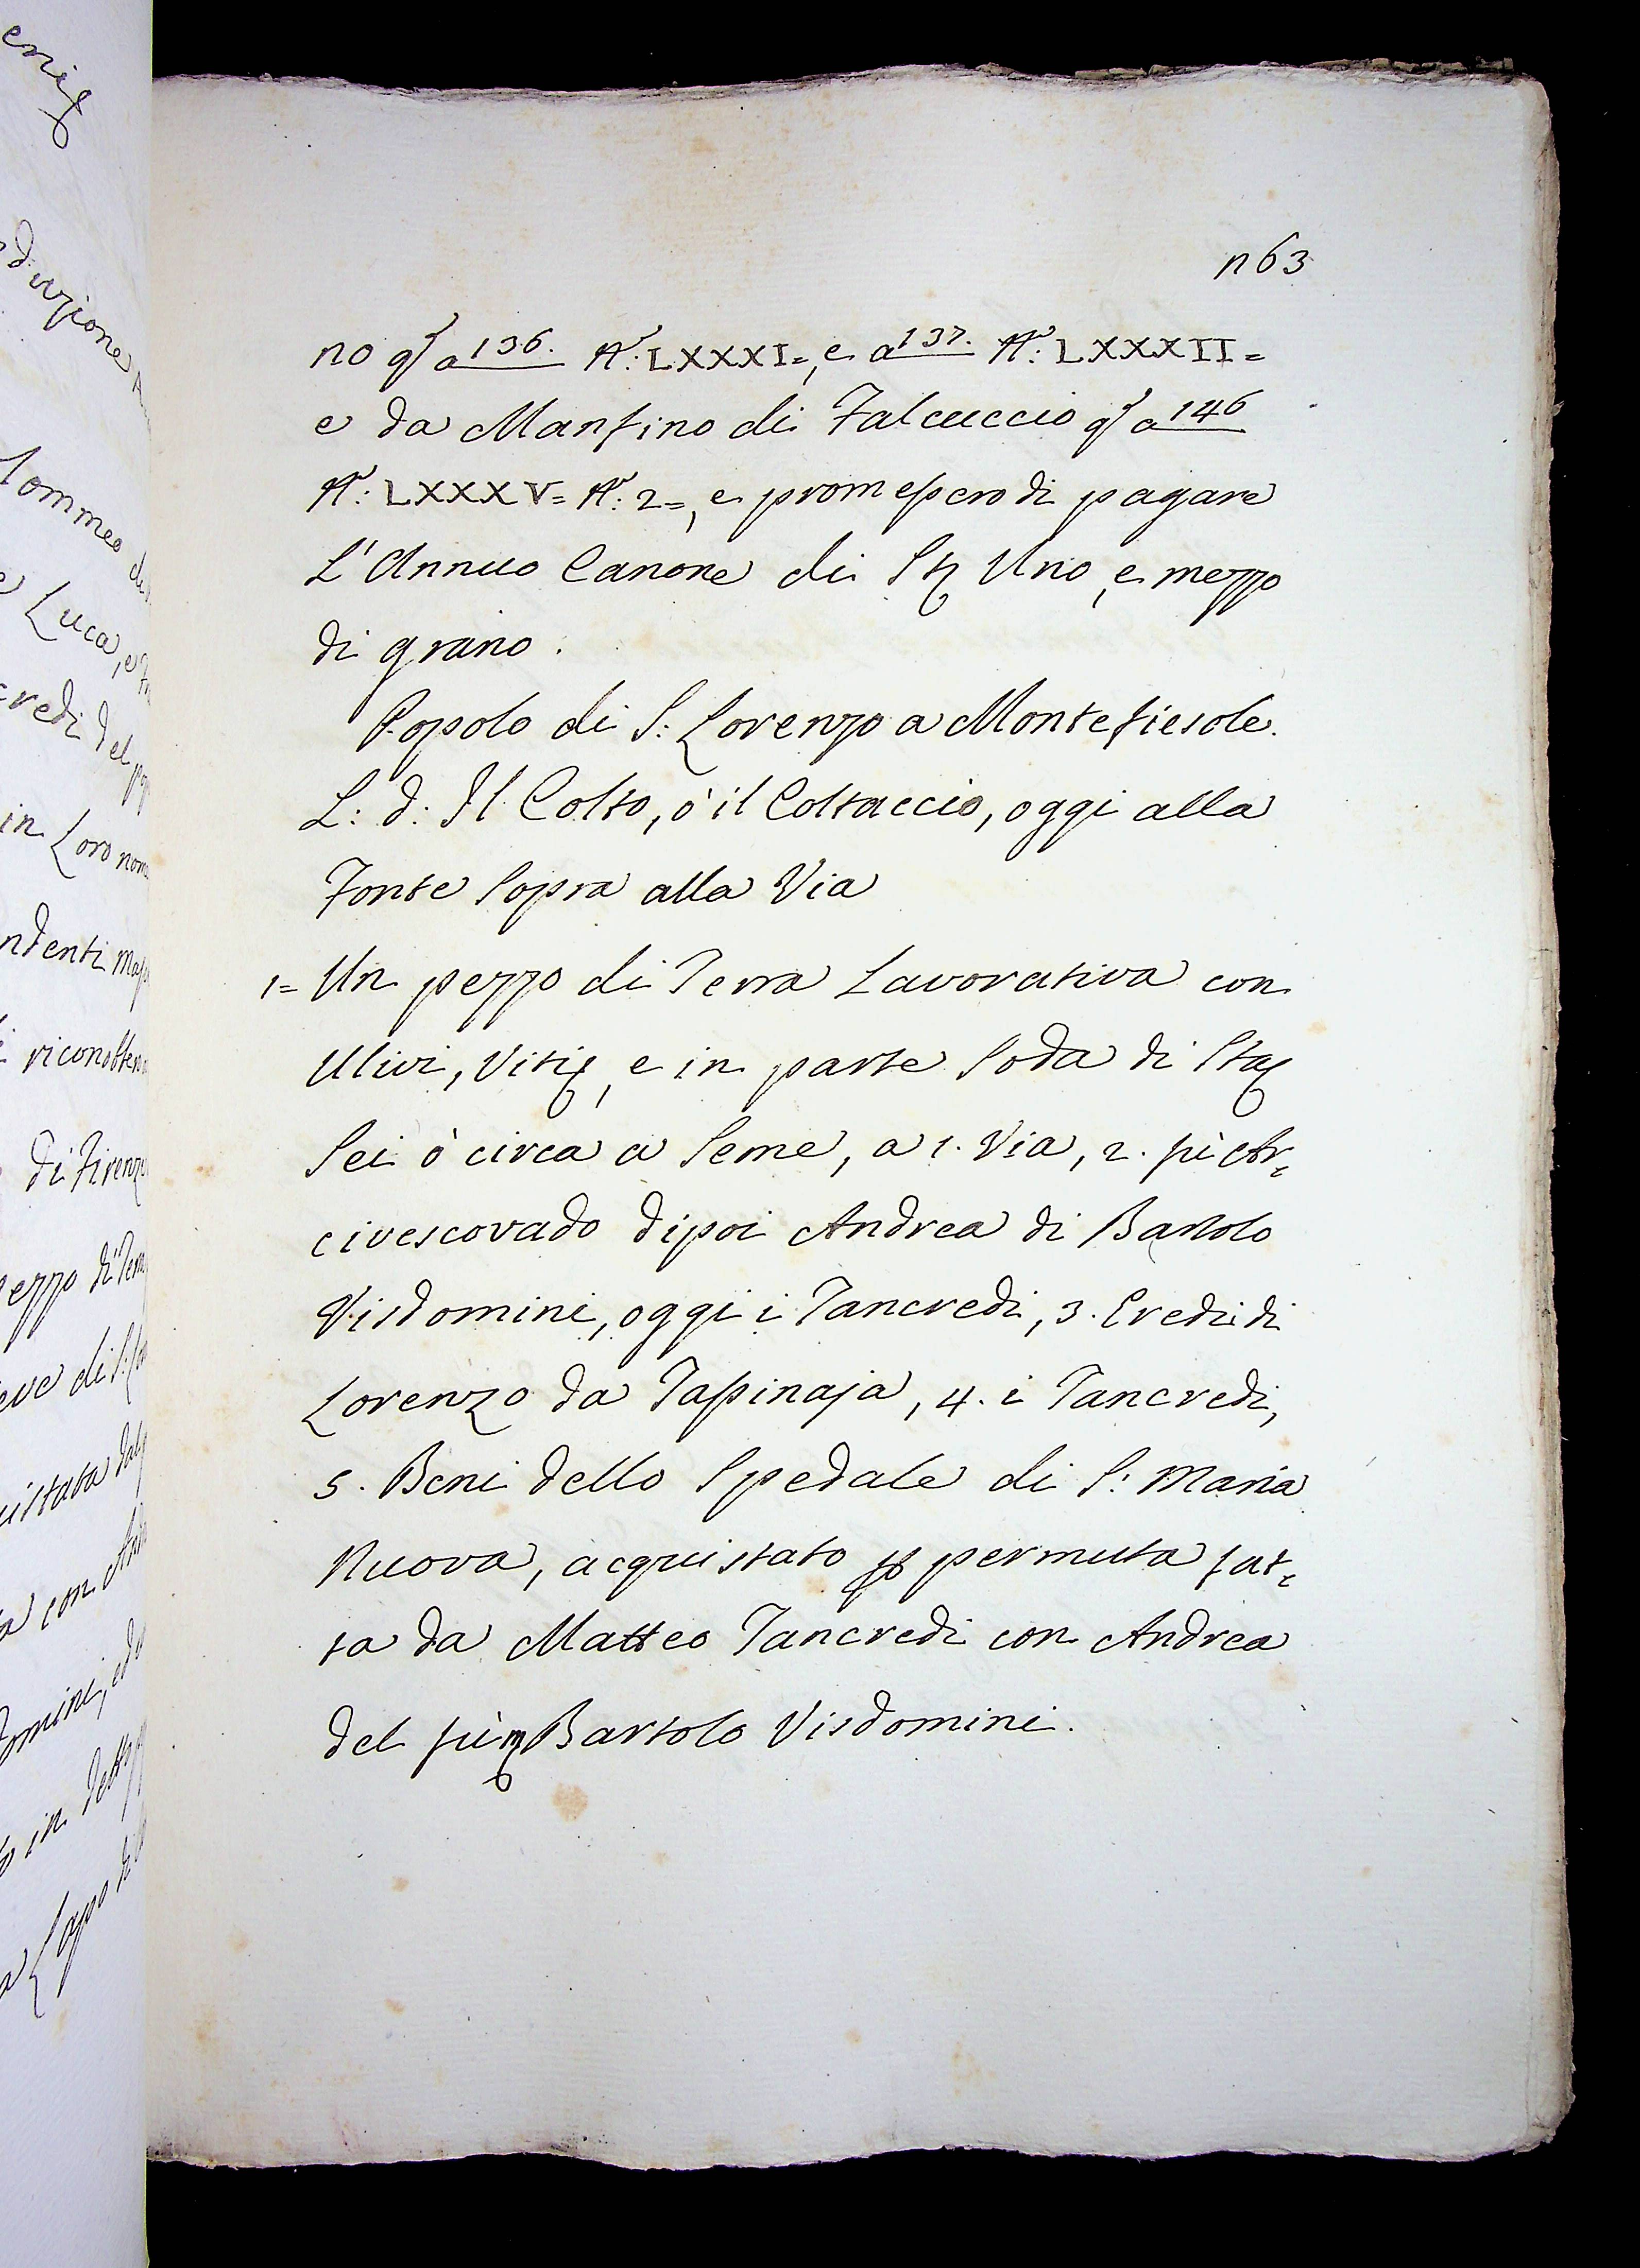 n 63
no q.o a 136. N.o: LXXXI=, e a 137. N.o: LXXXII=
e da Manfino di Falcuccio q.o a 146
N.o: LXXXV= N.o: 2=, e promessero di pagare
L'Annuo Canone di St. Uno, e mezzo
di grano.
Popolo di S: Lorenzo a Montefiesole.
L: d: Il Colto, ò il Coltaccio, oggi alla
Fonte Sopra alla Via
1= Un pezzo di Terra Lavorativa con
Ulivi, Viti, e in parte Soda di Sta
Sei ò circa a Seme, a 1. Via, 2. più Ar=
civescovado dipoi Andrea di Bartolo
Visdomini, oggi i Tancredi, 3. Eredi di
Lorenzo da Tassinaja, 4. i Tancredi,
5. Beni dello Spedale di S: Maria
Nuova, acquistato p permuta fat=
ta da Matteo Tancredi con Andrea
del Bartolo Visdomini.
Luca, e
redi del
in Loro nom
ndenti
di Firenze
ezzo di Terr
eve di S:
istata dal
a con And
omini, e
o in detto
a Lapo di